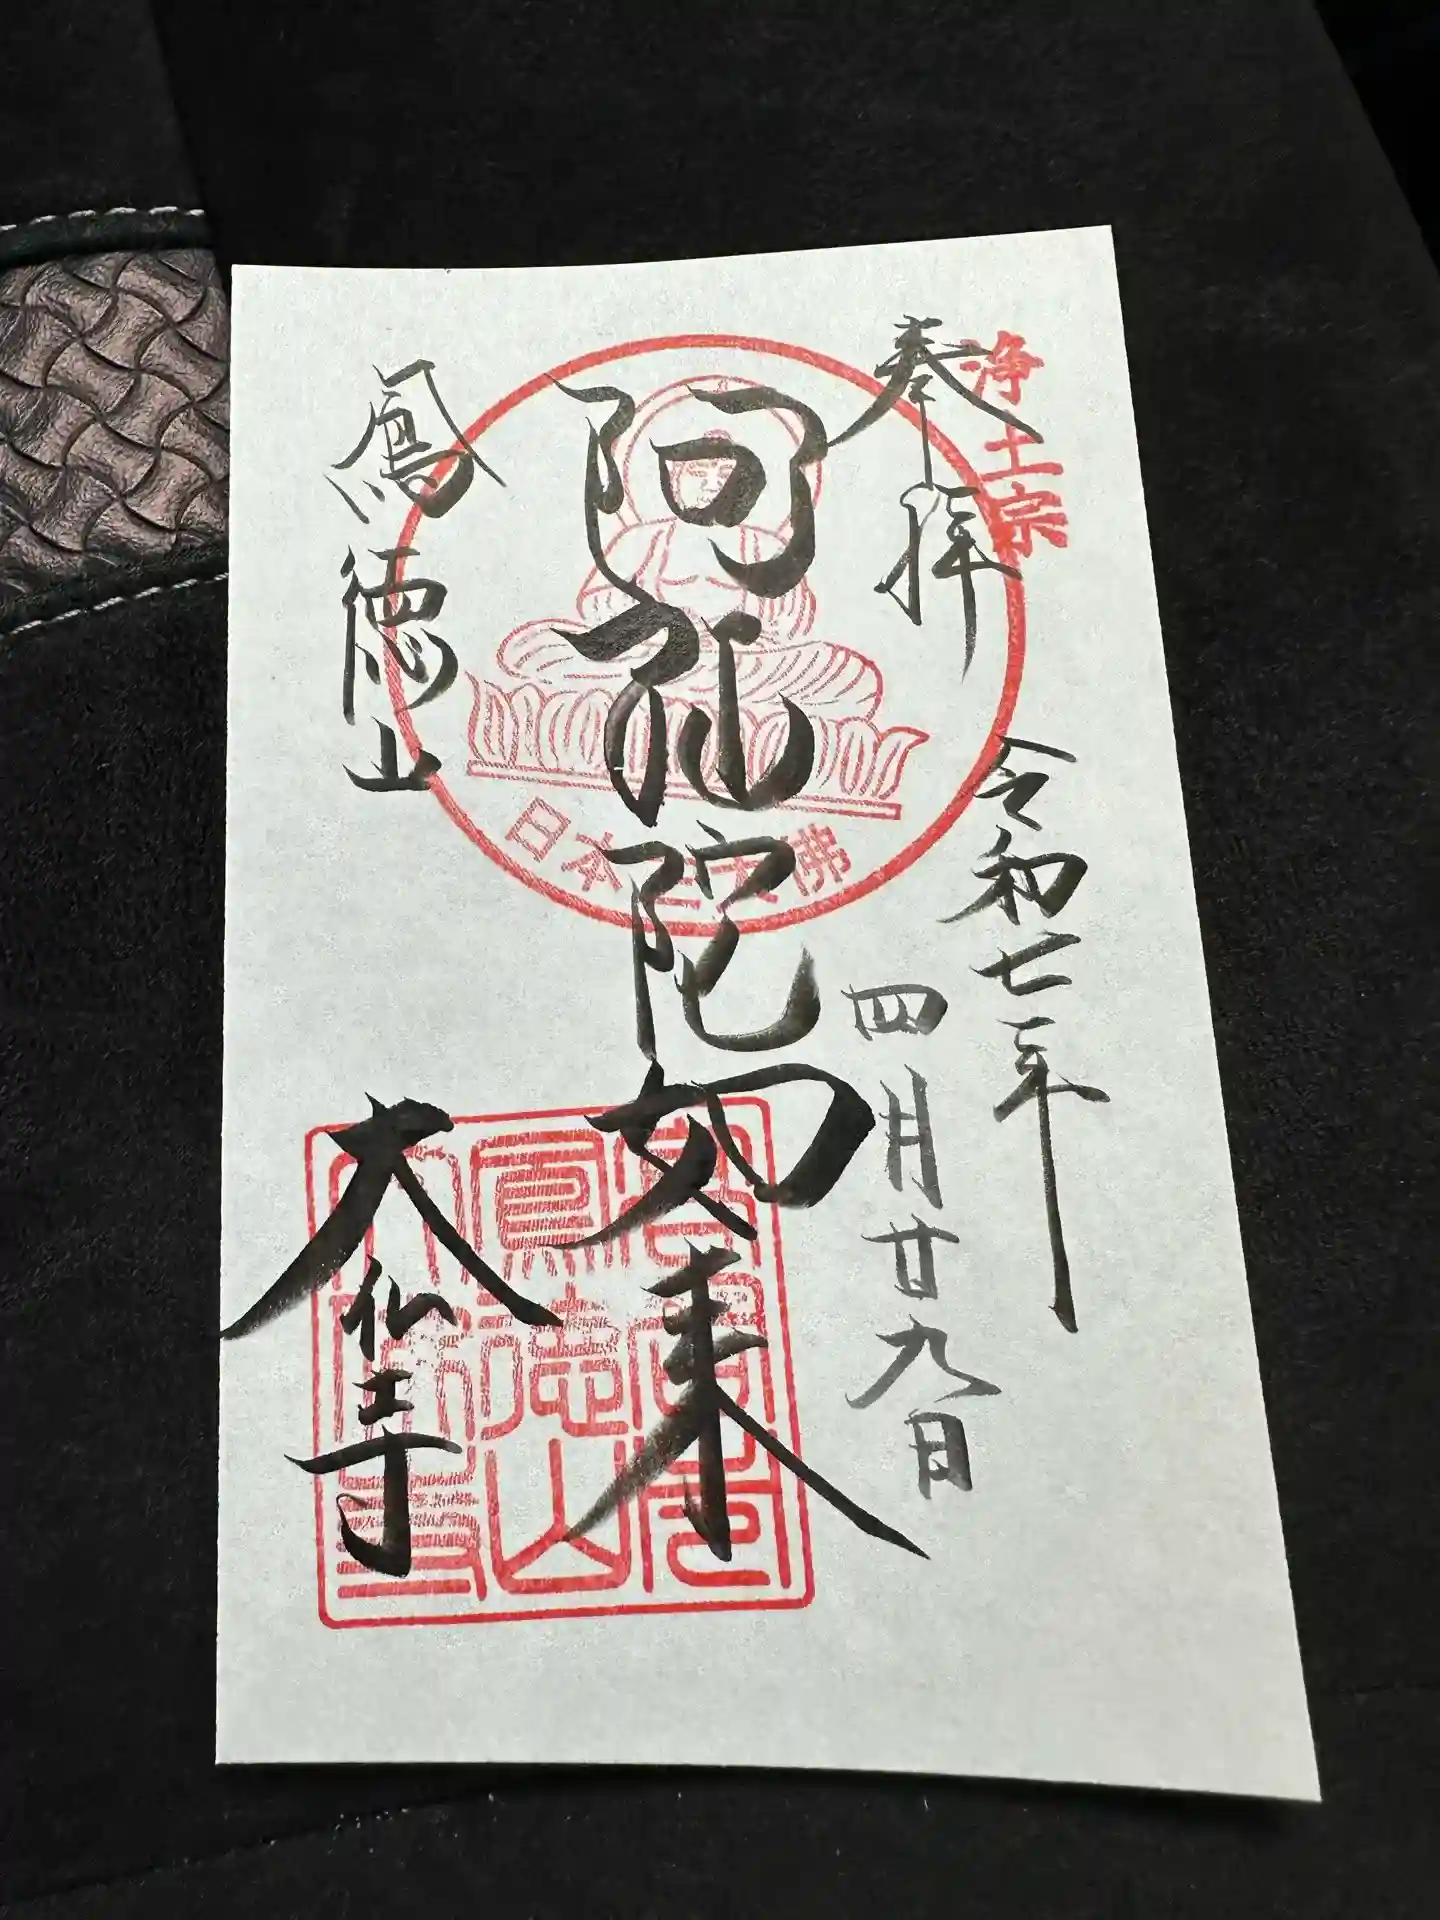 浄土宗
奉拝
令和七年
四月廿九日
阿弥陀如来
日本三大佛
鳳徳山
大仏寺